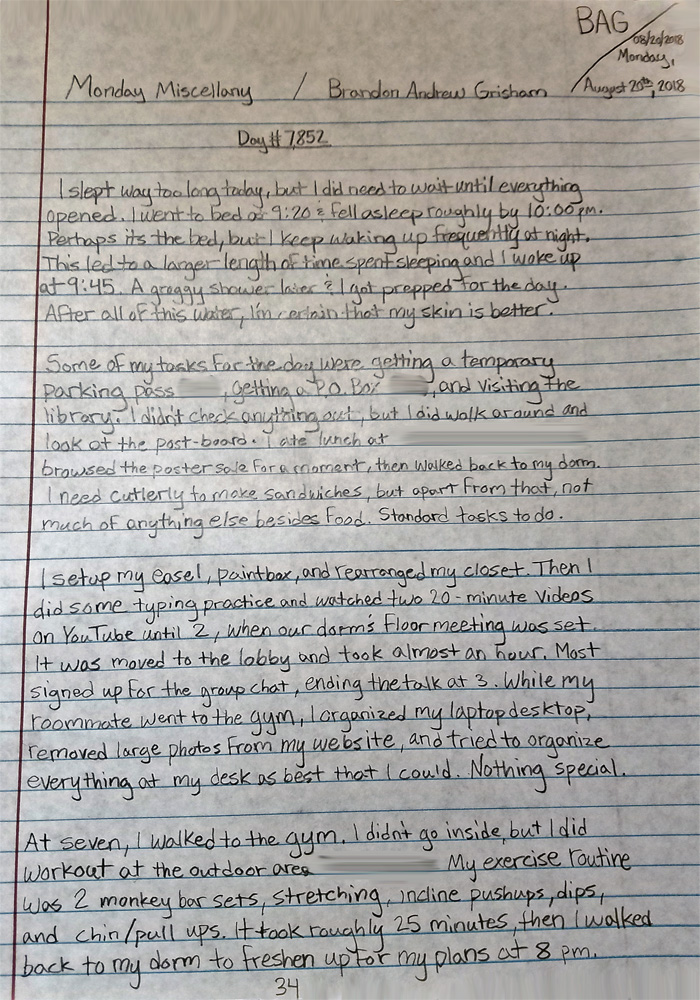 BAG
08/20/2018
Monday,
August 20th, 2018
Monday Miscellany / Brandon Andrew Grisham
Day # 7,852
I slept way too long today, but I did need to wait until everything
opened. I went to bed at 9:20 & fell asleep roughly by 10:00 pm.
Perhaps its the bed, but I keep waking up frequently at night.
This led to a larger length of time spent sleeping and I woke up
at 9:45. A groggy shower later & I got prepped for the day.
After all of this water, I'm certain that my skin is better.
Some of my tasks for the day were getting a temporary
parking pass , getting a P.O. Box , and visiting the
library. I didn't check anything out, but I did walk around and
look at the post-board. I ate lunch at
browsed the poster sale for a moment, then walked back to my dorm.
I need cutlerly to make sandwiches, but apart from that, not
much of anything else besides food. Standard tasks to do.
I setup my easel, paintbox, and rearranged my closet. Then I
did some typing practice and watched two 20-minute videos
on YouTube until 2, when our dorm's floor meeting was set.
It was moved to the lobby and took almost an hour. Most
signed up for the group chat, ending the talk at 3. While my
roommate went to the gym, I organized my laptop desktop,
removed large photos from my website, and tried to organize
everything at my desk as best that I could. Nothing special.
At seven, I walked to the gym. I didn't go inside, but I did
workout at the outdoor area My exercise routine
was 2 monkey bar sets, stretching, incline pushups, dips,
and chin/pull ups. It took roughly 25 minutes, then I walked
back to my dorm to freshen up for my plans at 8 pm.
34